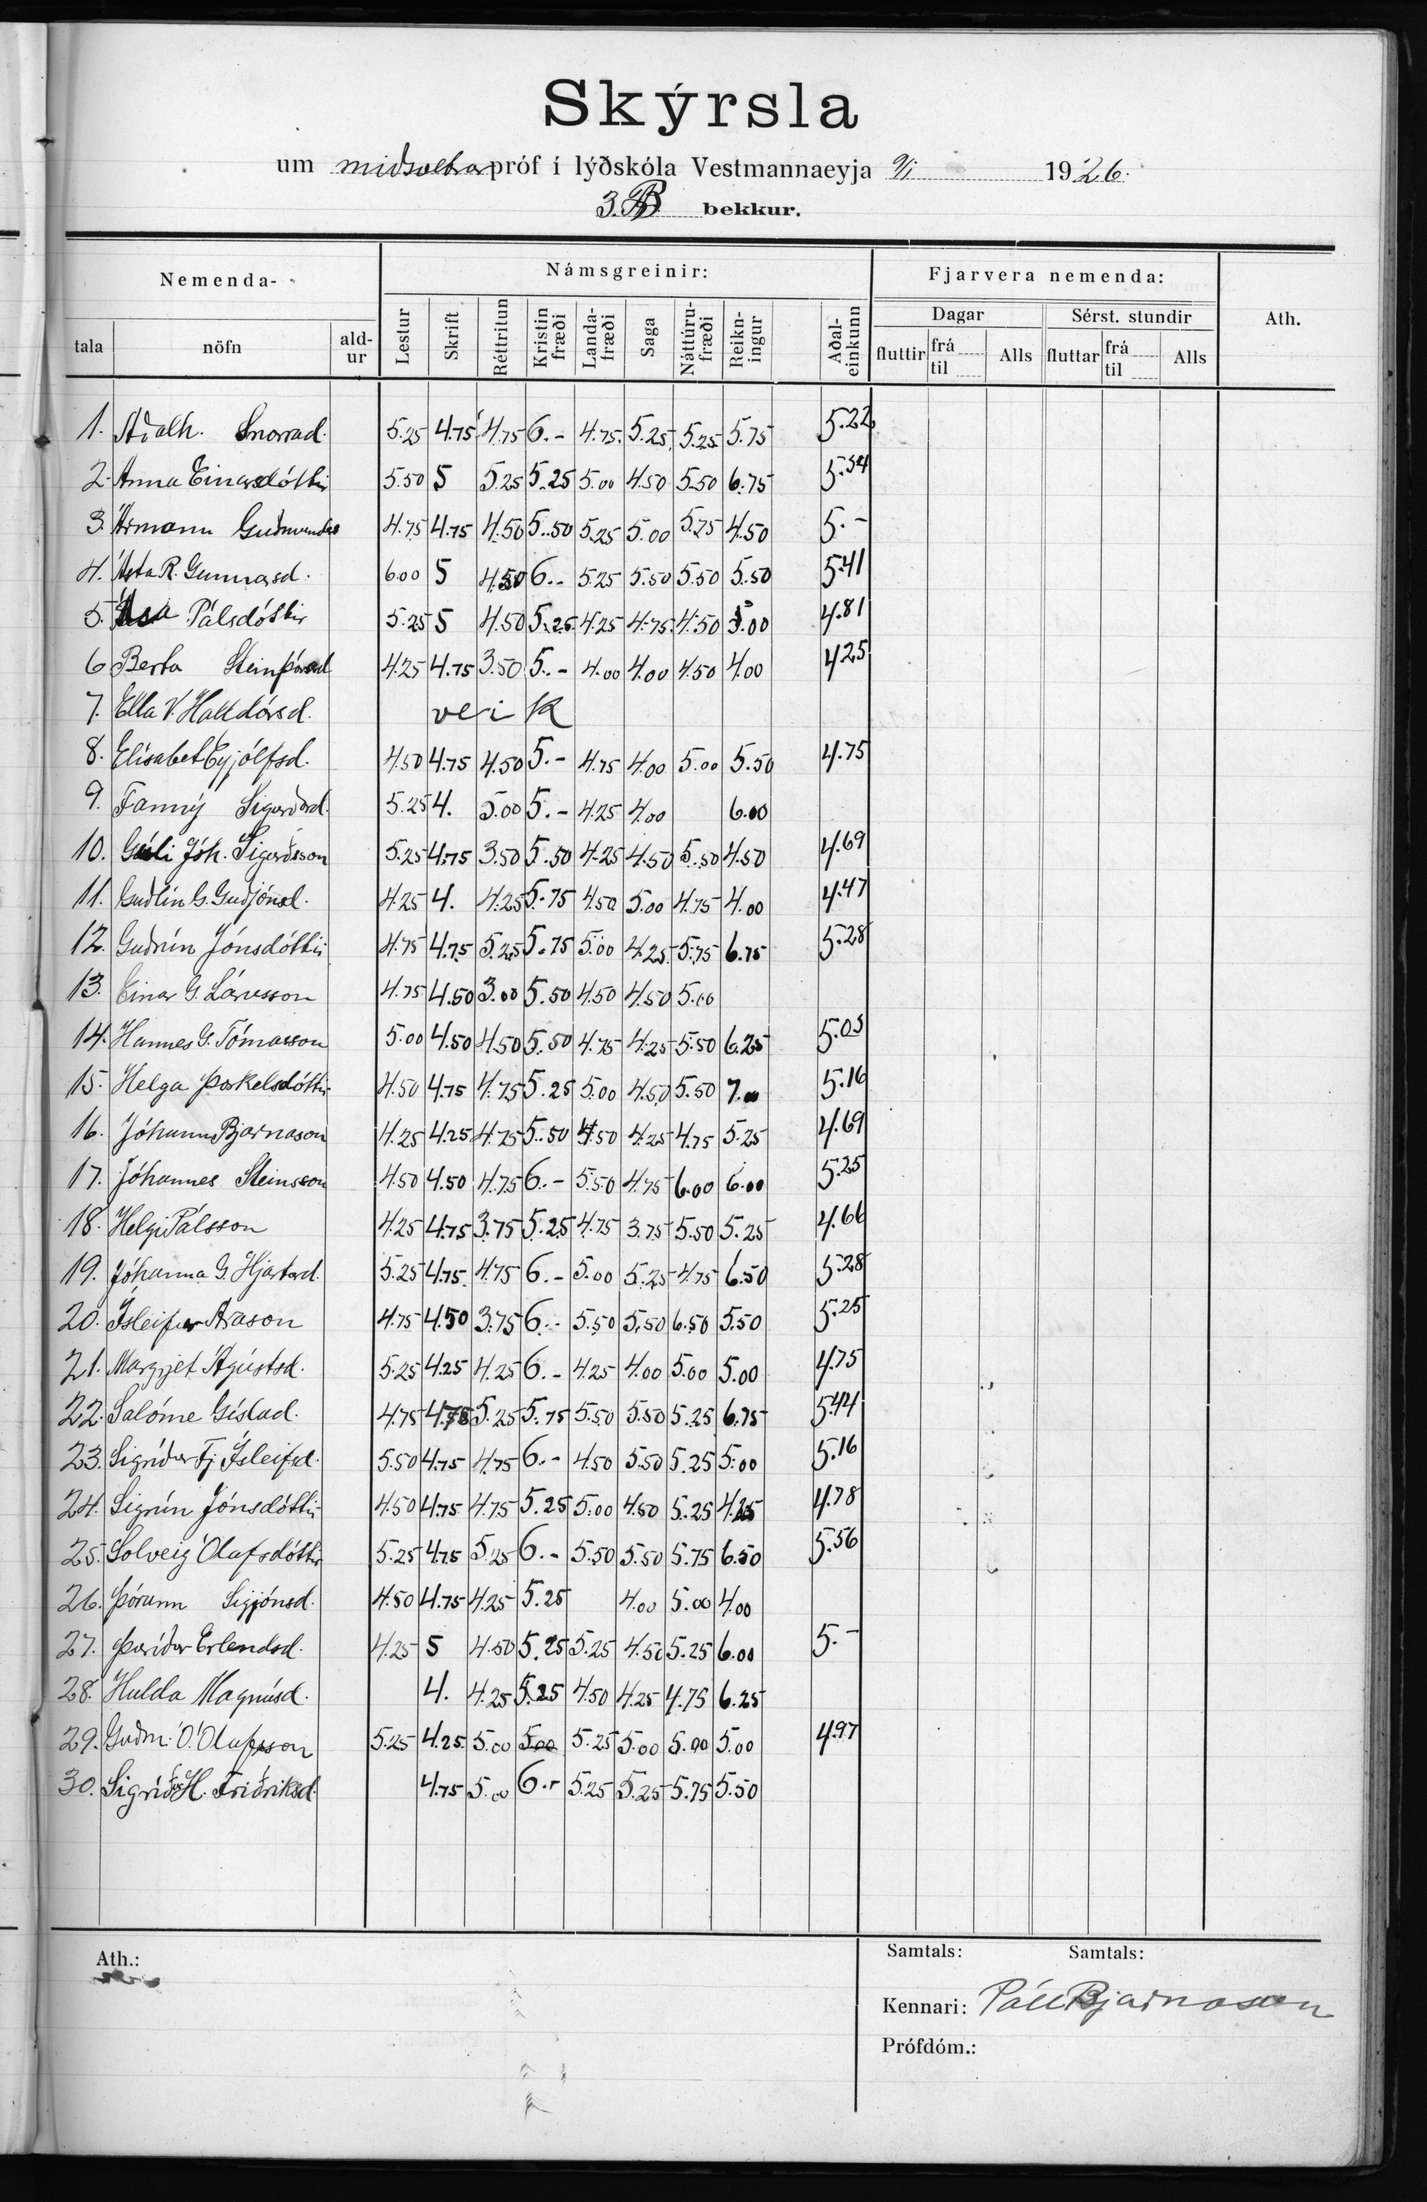 Skýrsla
um miðsvetrar próf í lýðskóla Vestmannaeyja 9/1 1926.
3. B bekkur.
Nemenda- Námsgreinir: Fjarvera nemenda: Ath.
tala nöfn ald-ur Lestur Skrift Réttritun Kristin fræði Landa-fræði Saga Náttúru-fræði Reikn-ingur Aðal-einkunn Dagar Sérst. stundir
fluttir frá til Alls fluttar frá til Alls
1. Aðalh. Snorrad. 5.25 4.75 4.75 6.- 4.75 5.25 5.25 5.75 5.22
2. Anna Einarsdóttir 5.50 5 5.25 5.25 5.00 4.50 5.50 6.75 5.34
3. Ármann Guðmundss 4.75 4.75 4.50 5.50 5.25 5.00 5.75 4.50 5.-
4. Ásta R. Gunnarsd. 6.00 5 4.50 6.- 5.25 5.50 5.50 5.50 5.41
5. Ása Pálsdóttir 5.25 5 4.50 5.25 4.25 4.75 4.50 5.00 4.81
6 Berta Steinþórsd 4.25 4.75 3.50 5.- 4.00 4.00 4.50 4.00 4.25
7. Ella V. Halldórsd. veik
8. Elísabet Eyjólfsd. 4.50 4.75 4.50 5.- 4.75 4.00 5.00 5.50 4.75
9. Fanný Sigurðard. 5.25 4. 5.00 5.- 4.25 4.00 6.00
10. Gísli Jóh. Sigurðsson 5.25 4.75 3.50 5.50 4.25 4.50 5.50 4.50 4.69
11. Guðlín G. Guðjónsd. 4.25 4. 4.25 5.75 4.50 5.00 4.75 4.00 4.47
12. Guðrún Jónsdóttir 4.75 4.75 5.25 5.75 5.00 4.25 5.75 6.75 5.28
13. Einar G. Lárusson 4.75 4.50 3.00 5.50 4.50 4.50 5.00
14. Hannes G. Tómasson 5.00 4.50 4.50 5.50 4.75 4.25 5.50 6.25 5.03
15. Helga Þorkelsdóttir 4.50 4.75 4.75 5.25 5.00 4.50 5.50 7.00 5.16
16. Jóhann Bjarnason 4.25 4.25 4.75 5.50 4.50 4.25 4.75 5.25 4.69
17. Jóhannes Steinsson 4.50 4.50 4.75 6.- 5.50 4.75 6.00 6.00 5.25
18. Helgi Pálsson 4.25 4.75 3.75 5.25 4.75 3.75 5.50 5.25 4.66
19. Jóhanna G. Hjartard. 5.25 4.75 4.75 6.- 5.00 5.25 4.75 6.50 5.28
20. Ísleifur Arason 4.75 4.50 3.75 6.- 5.50 5.50 6.50 5.50 5.25
21. Margrjet Ágústsd. 5.25 4.25 4.25 6.- 4.25 4.00 5.00 5.00 4.75
22. Salóme Gíslad. 4.75 4.75 5.25 5.75 5.50 5.50 5.25 6.75 5.44
23. Sigríður Fj Ísleifsd. 5.50 4.75 4.75 6.- 4.50 5.50 5.25 5.00 5.16
24. Sigrún Jónsdóttir 4.50 4.75 4.75 5.25 5.00 4.50 5.25 4.25 4.78
25. Solveig Ólafsdóttir 5.25 4.75 5.25 6.- 5.50 5.50 5.75 6.50 5.56
26. Þórunn Sigjónsd. 4.50 4.75 4.25 5.25 4.00 5.00 4.00
27. Þuríður Erlendsd. 4.25 5 4.50 5.25 5.25 4.50 5.25 6.00 5.-
28. Hulda Magnúsd. 4. 4.25 5.25 4.50 4.25 4.75 6.25
29. Guðm. Ó. Ólafsson 5.25 4.25 5.00 5.00 5.25 5.00 5.00 5.00 4.97
30. Sigríður H. Friðriksd. 4.75 5.00 6.- 5.25 5.25 5.75 5.50
Ath.: Samtals: Samtals:
Kennari: Páll Bjarnason
Prófdóm.: